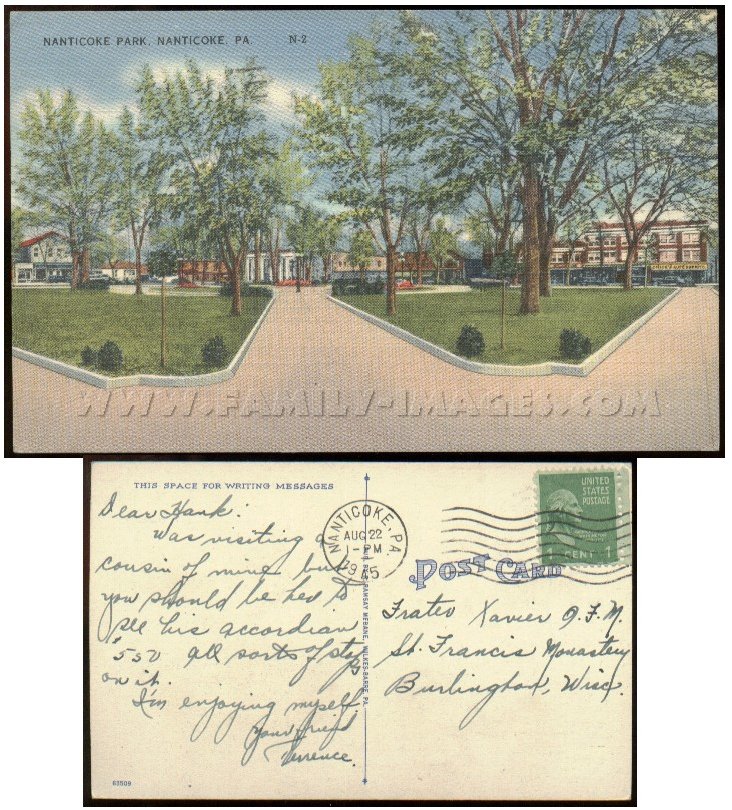 NANTICOKE PARK, NANTICOKE, PA. N-2
WWW.FAMILY-IMAGES.COM
THIS SPACE FOR WRITING MESSAGES
Dear Hank:
Was visiting a
cousin of mine but
you should be here to
see his accordian
$550 all sorts of stops
on it.
I'm enjoying myself
Your friend
Terrence.
NANTICOKE, PA.
AUG 22
1-PM
1945
UNITED
STATES
POSTAGE
1 CENT 1
POST CARD
Frater Xavier O.F.M.
St. Francis Monastery
Burlington, Wisc.
PUB. BY RAMSAY MEBANE, WILKES-BARRE, PA.
63509